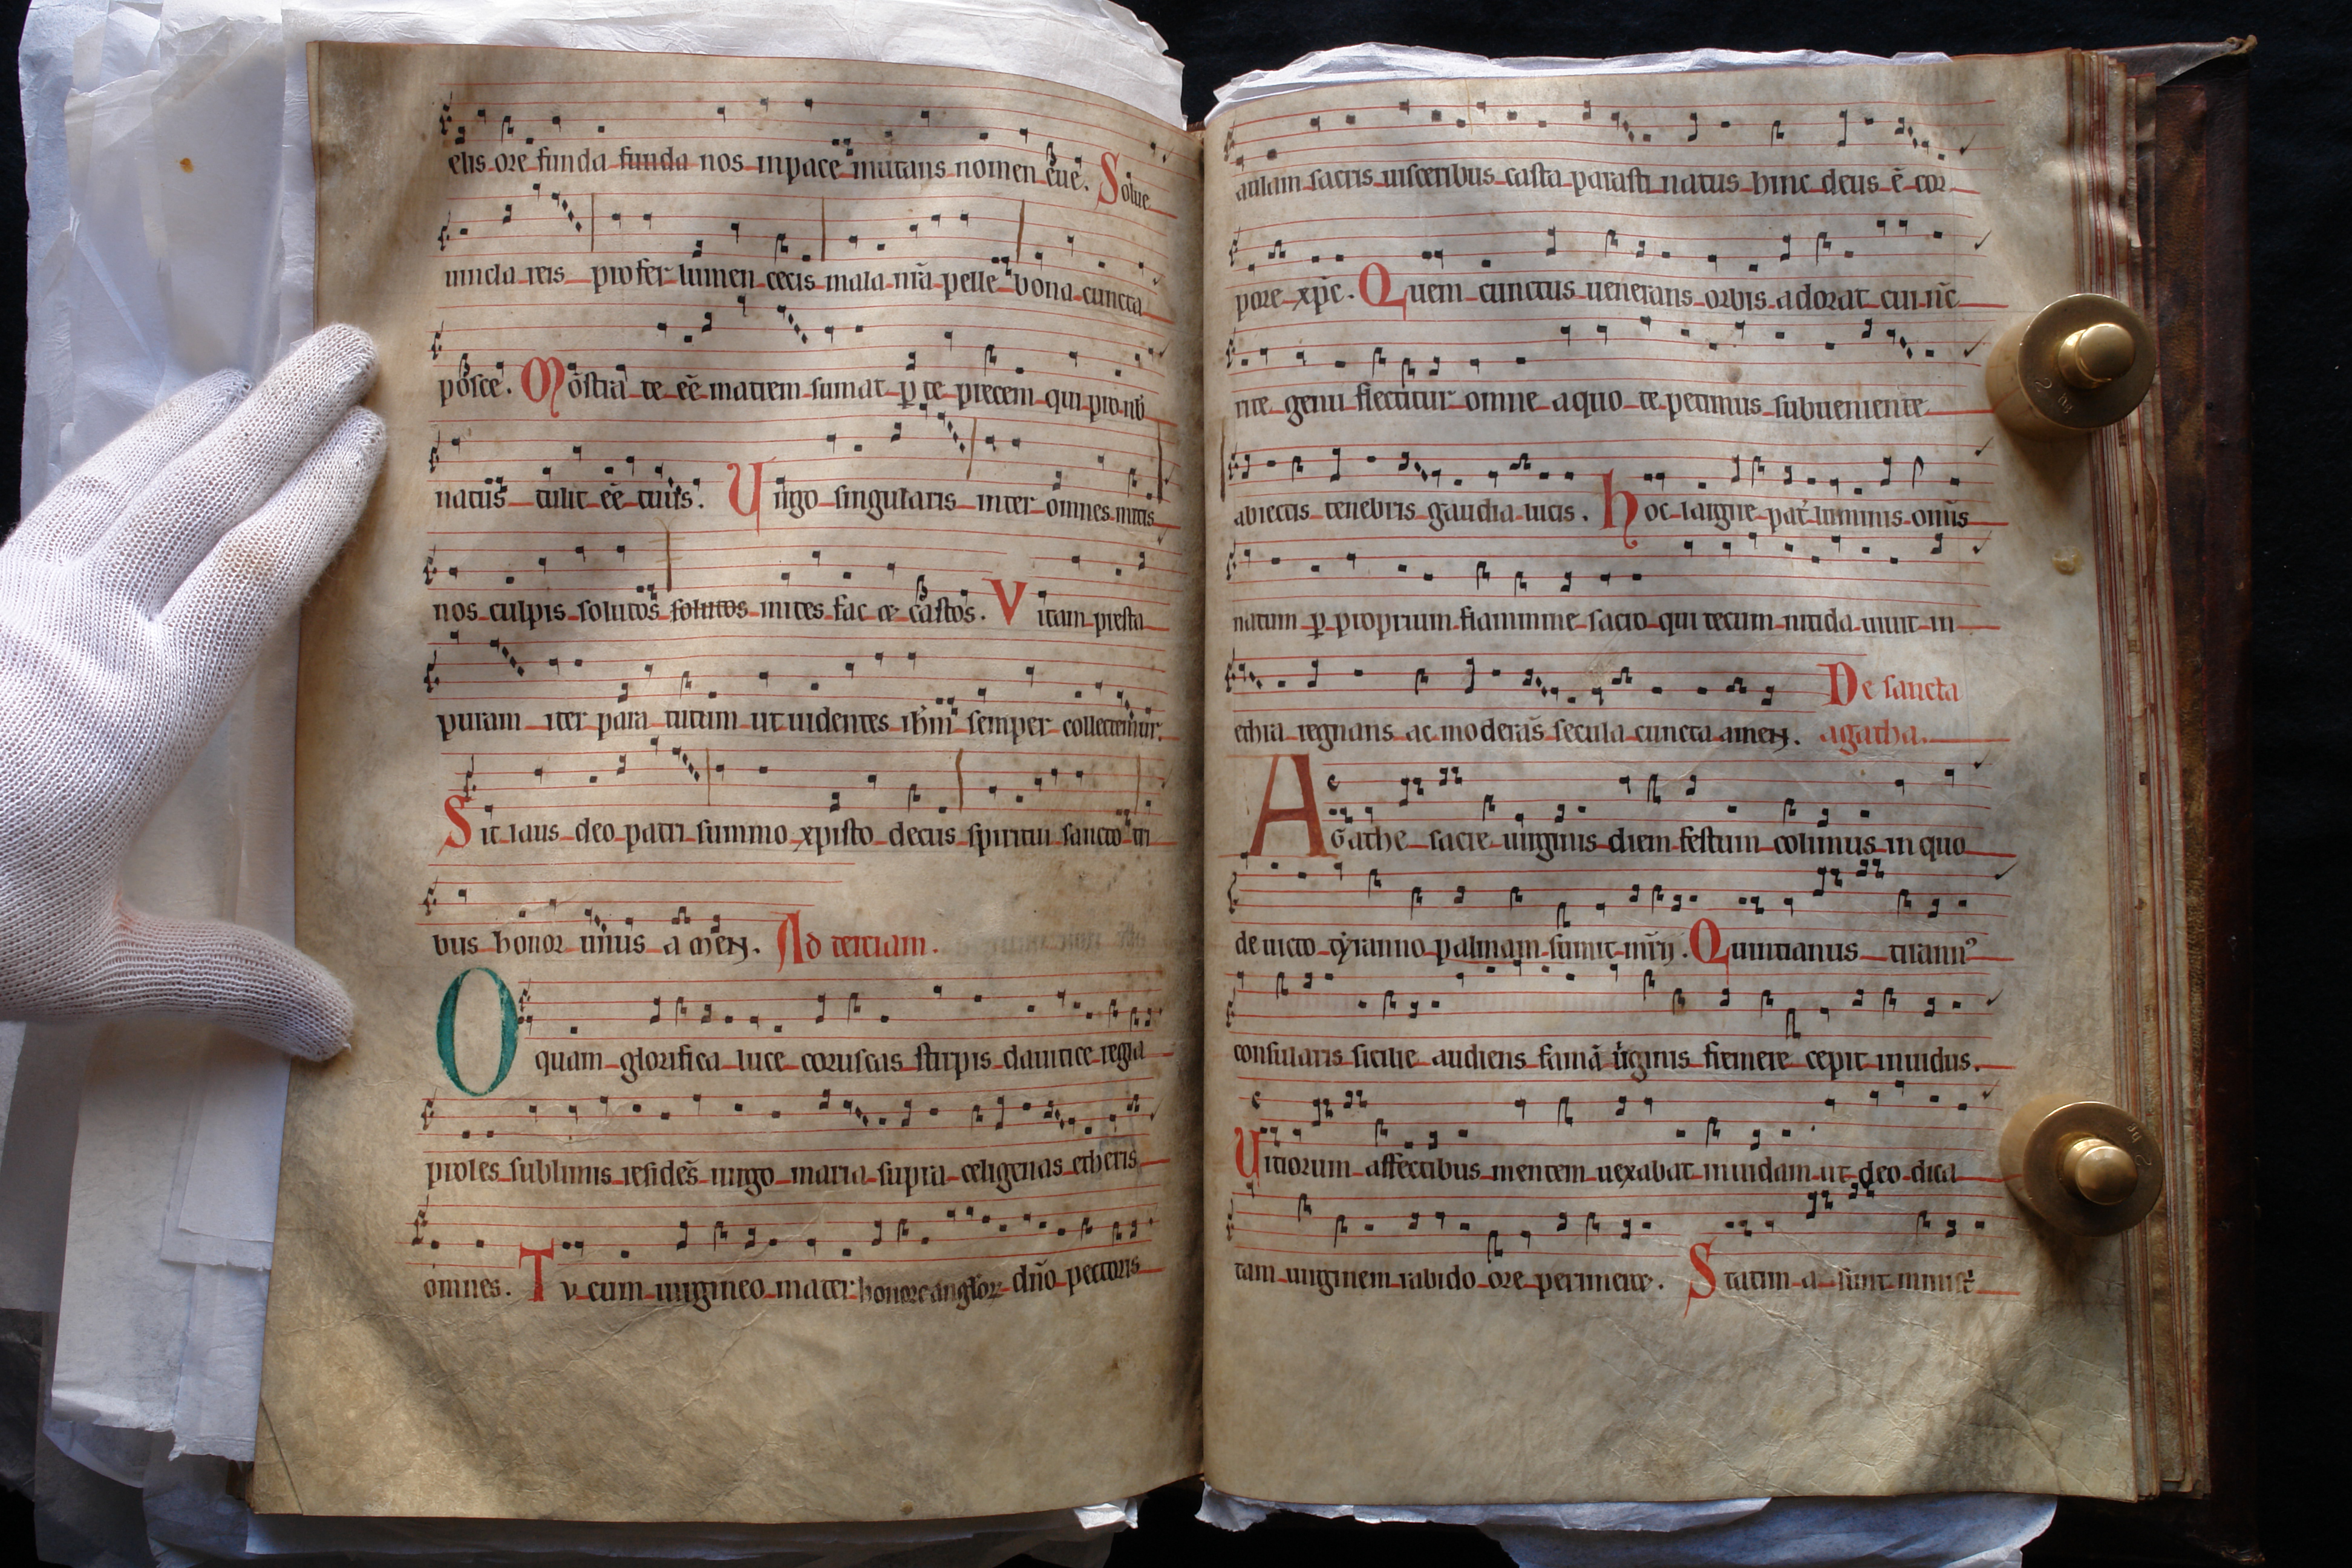 elis ore funda funda nos inpace mutans nomen eue. Solue
uincla reis profer lumen cecis mala nr̄a pelle bona cuncta
posce. Monstra te eē matrem sumat ꝑ te precem qui pro nob
natus tulit eē tuus. Uirgo singularis inter omnes mitis
nos culpis solutos solutos mites fac et castos. Vitam presta
puram iter para tutum ut uidentes ihm semper collectemur.
Sit laus deo patri summo xpisto decus spiritui sancto tri
bus honor unus amen. Ad terciam.
O quam glorifica luce coruscas stirpis dauitice regia
proles sublimis residēs uirgo maria supra celigenas etheris
omnes. Tu cum uirgineo mater honore anglor dn̄o pectoris
aulam sacris uisceribus casta parasti natus hinc deus ē cor
pore xp̄c. Quem cunctus uenerans orbis adorat cui nc̄
rite genu flectitur omne a quo te petimus subueniente
abiectis tenebris gaudia lucis. Hoc largire pat̄ luminis omīs
natum ꝑ proprium flamine sacro qui tecum nitida uiuit in
ethra regnans ac moderās secula cuncta amen. De sancta
agatha.
Agathe sacre uirginis diem festum colimus in quo
de uicto tyranno palmam sumit mr̄ij. Quintianus tirannꝰ
consularis sicilie audiens famā uirginis fremere cepit inuidus.
Uitiorum affectibus mentem uexabat inuidam ut deo dica
tam uirginem rabido ore perimeret. Statim a sunt minist̄